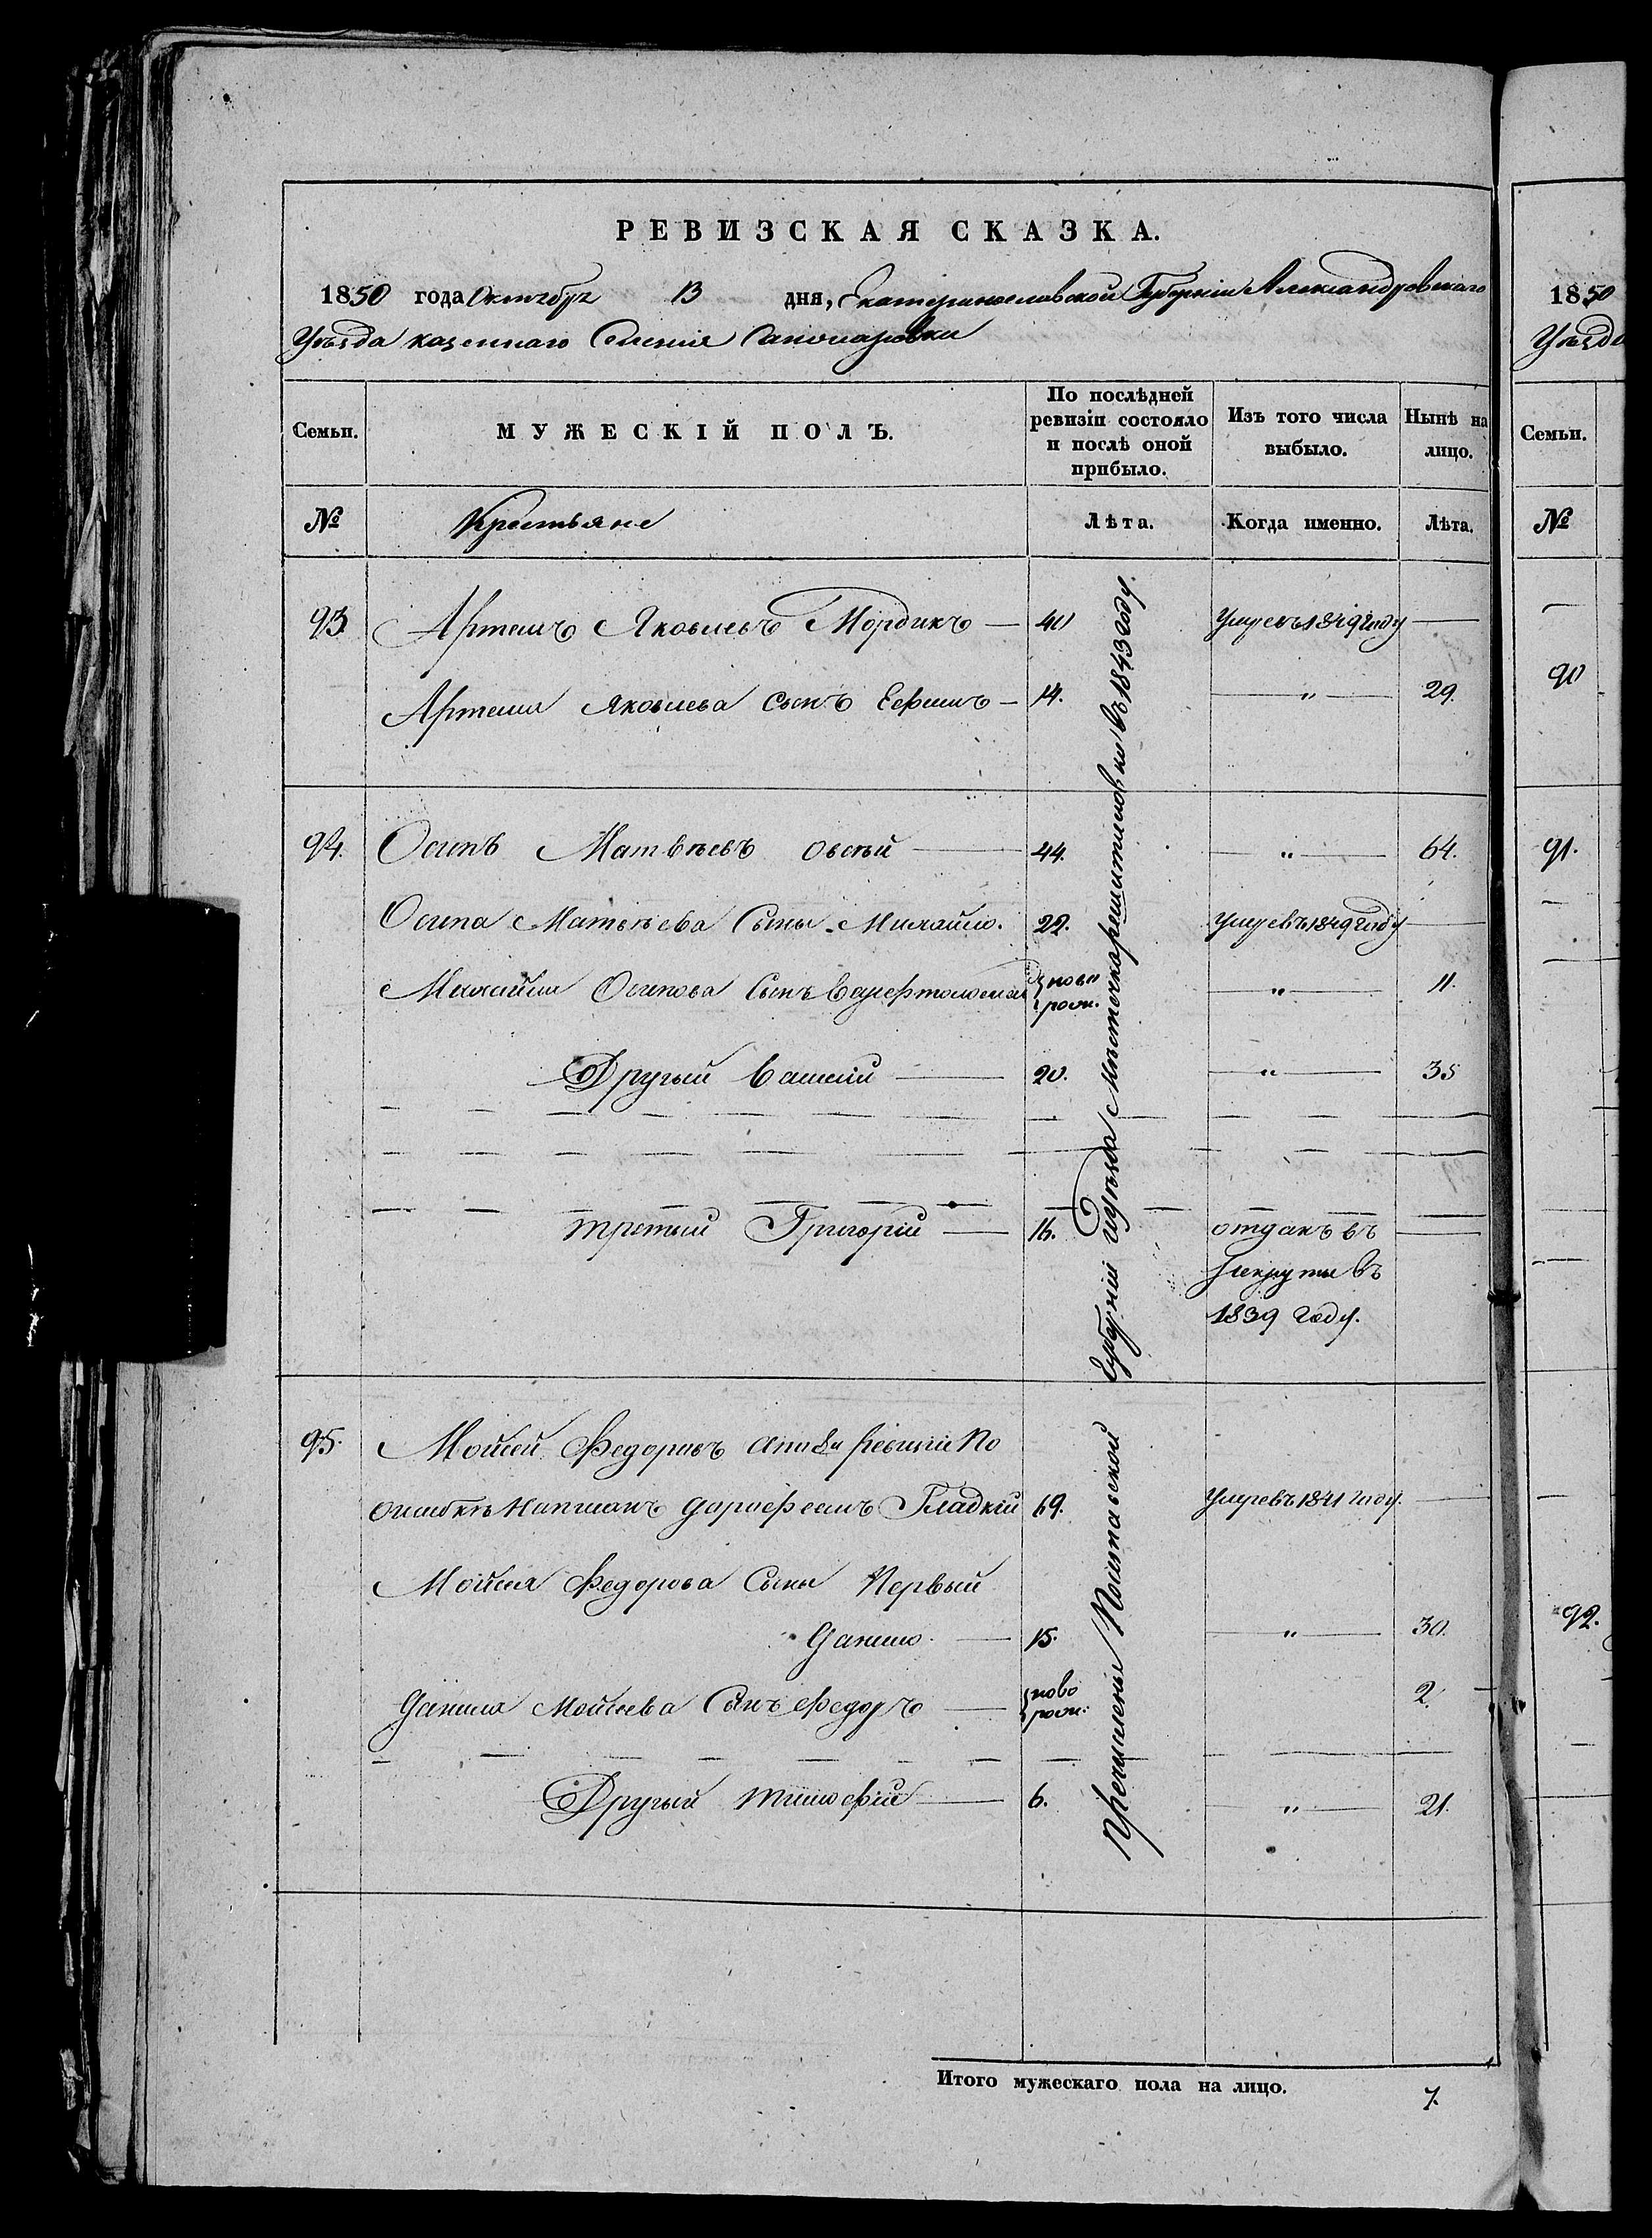 РЕВИЗСКАЯ СКАЗКА.
1850 года Октября 13 дня, Екатеринославской Губерніи Александровскаго
Уѣзда казеннаго Селенія
Семьи. МУЖЕСКІЙ ПОЛЪ. По послѣдней ревизіи состояло и послѣ оной прибыло. Изъ того числа выбыло. Нынѣ на лицо.
№ Крестьяне Лѣта. Когда именно. Лѣта.
93 Артемъ Яковлевъ Мордикъ — 40 Умре въ 1849 году —
Артема Яковлева сынъ Ефимъ — 14. — „ — 29.
94. Осипъ Матвѣевъ — 44. — „ — 64.
Осипа Матвѣева Сыны Михайло. 22. Умре въ 1849 году —
Михайла Осипова Сынъ Варфоломей новорож. — „ — 11.
Другый Василій — 20. — „ — 35
третый Григорій — 16. отданъ въ —
рекруты въ
1839 году.
95. Мойсей Федоровъ ревизіи по
ошибкѣ написанъ Гладкій 69. Умре въ 1841 году. —
Мойсея Федорова Сыны Первый
Данило. — 15. — „ — 30.
Данила Мойсеева Сынъ Федоръ — новорож: 2.
Другый тимофій — 6. — „ — 21.
Полтавской
Губерніи уѣзда Мѣстечка Решитиловки въ 1843 году.
Итого мужескаго пола на лицо. 7.
1850
Уѣзда
Семьи.
№
90
91.
92.